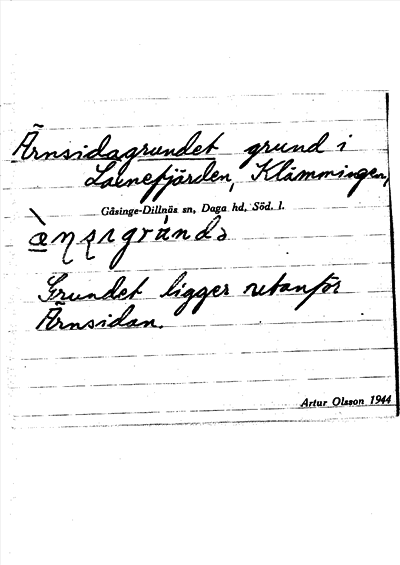 Ärnsidagrundet grund i
Laenefjärden, Klämmingen,
Gåsinge-Dillnäs sn, Daga hd, Söd. l.
Grundet ligger utanför
Ärnsidan.
Artur Olsson 1944